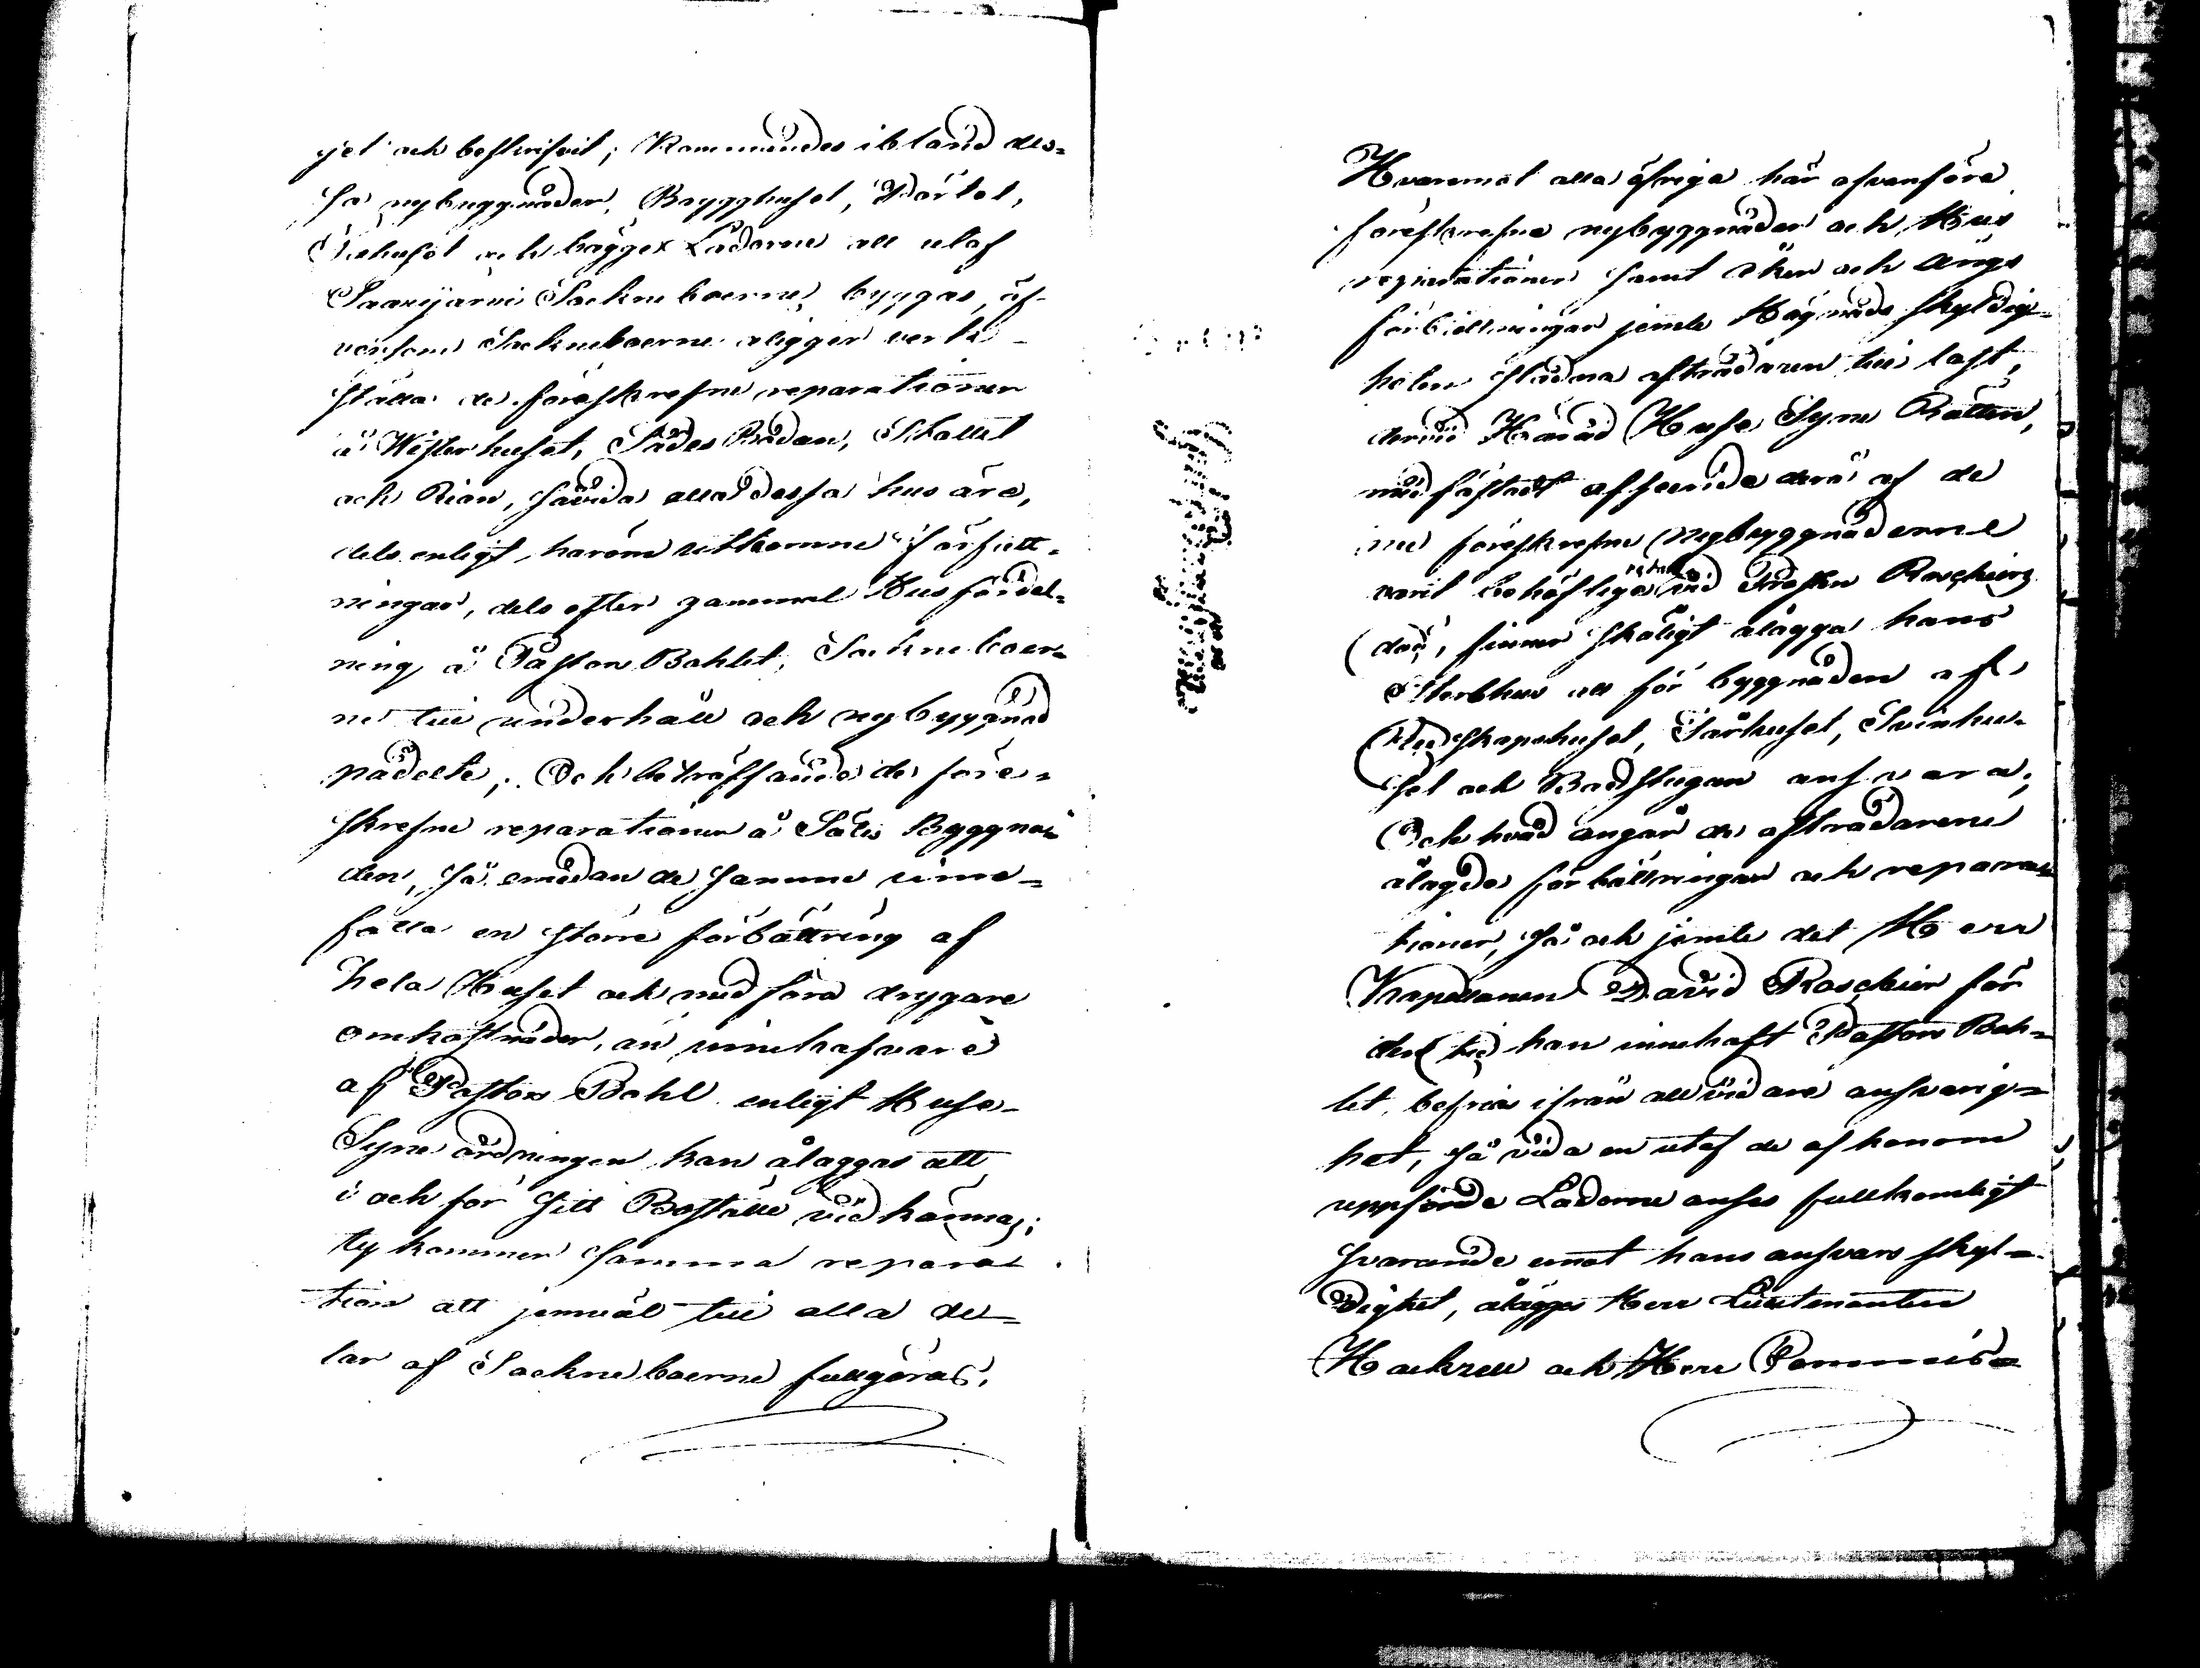 jet och beskrifvit; Kommandes ibland des-
sa nybyggnader, Brygghuset, Pörtet,
Fähuset och bägge Ladorne att utaf
Saarijärvi Sockneboerne byggas, äf-
vensom Sockneboerne åligger verk-
ställa de föreskrefne reparationer
å Wisterhuset, Sädes Bodan, Stallet
och Rian, såvida alla dessa hus äro,
dels enligt härom utkomne författ-
ningar, dels efter gammal Husfördel-
ning å Pastors Bohlet, Sockneboer-
ne till underhåll och nybyggnad
påförte; Och beträffande de före-
skrefne reparationer å Sätes Byggna-
den, så emedan de samme inne-
fatta en större förbättring af
hela Huset och medföra drygare
omkostnader, än innehafvare
af Pastors Bohl enligt Huse-
Syns ordningen kan åläggas att
i och för sitt Boställe vidkännas;
ty kommer samma repara-
tion att jemväl till alla de-
lar af Sockneboerne fullgöras.
Hvaremot alla öfriga här ofvanföre
föreskrefne nybyggnader och Hus
reparationer samt åker och ängs
förbättringar jemte Hägnads skyldig-
heten stadna afträdaren till last,
dervid Härad Husesyns Rätten,
med fästadt afseende derå af de
nu föreskrefne nybyggnaderne
varit behöflige redan vid Prosten Roschiers
död, finner skäligt ålägga hans
Sterbhus att för byggnaden af
Redskapshuset, Fårhuset, Svinhu-
set och Badstugan ansvara;
Och hvad angår de afträdarene
ålagde förbättringar och repara-
tioner, så och jemte det Herr
Kapellanen David Roschier för
den tid han innehaft Pastors Boh-
let, befrias ifrån all vidare ansvarig-
het, så vida en utaf de af honom
uppförde Ladorne anses fullkomligt
svarande emot hans ansvars skyl-
dighet, åläggas Herr Lieutenanten
Hackzell och Herr Commis-